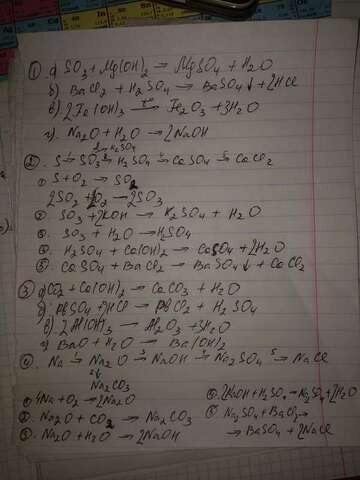 ① а) SO3 + Mg(OH)2 → MgSO4 + H2O
б) BaCl2 + H2SO4 → BaSO4↓ + 2HCl
в) 2Fe(OH)3 → Fe2O3 + 3H2O
г) Na2O + H2O → 2NaOH
② S → SO3 → H2SO4 → CaSO4 → CaCl2
K2SO4
① S + O2 → SO2
2SO2 + O2 → 2SO3
② SO3 + 2KOH → K2SO4 + H2O
③ SO3 + H2O → H2SO4
④ H2SO4 + Ca(OH)2 → CaSO4 + 2H2O
⑤ CaSO4 + BaCl2 → BaSO4↓ + CaCl2
③ а) CO2 + Ca(OH)2 → CaCO3 + H2O
б) PbSO4 + 2HCl → PbCl2 + H2SO4
в) 2Al(OH)3 → Al2O3 + 3H2O
г) BaO + H2O → Ba(OH)2
④ Na →1 Na2O →3 NaOH →4 Na2SO4 →5 NaCl
2↓
Na2CO3
① 4Na + O2 → 2Na2O
② Na2O + CO2 → Na2CO3
③ Na2O + H2O → 2NaOH
④ 2NaOH + H2SO4 → Na2SO4 + 2H2O
⑤ Na2SO4 + BaCl2 →
→ BaSO4 + 2NaCl